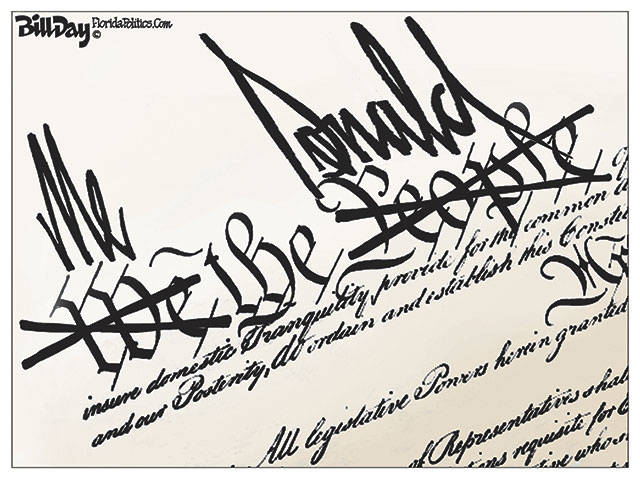 Bill Day FloridaPolitics.Com
©
Me Donald
We the People
insure domestic Tranquility, provide for the common
and our Posterity, do ordain and establish this Constitu
All legislative Powers herein granted
of Representatives shal
tions requisite for
tive who